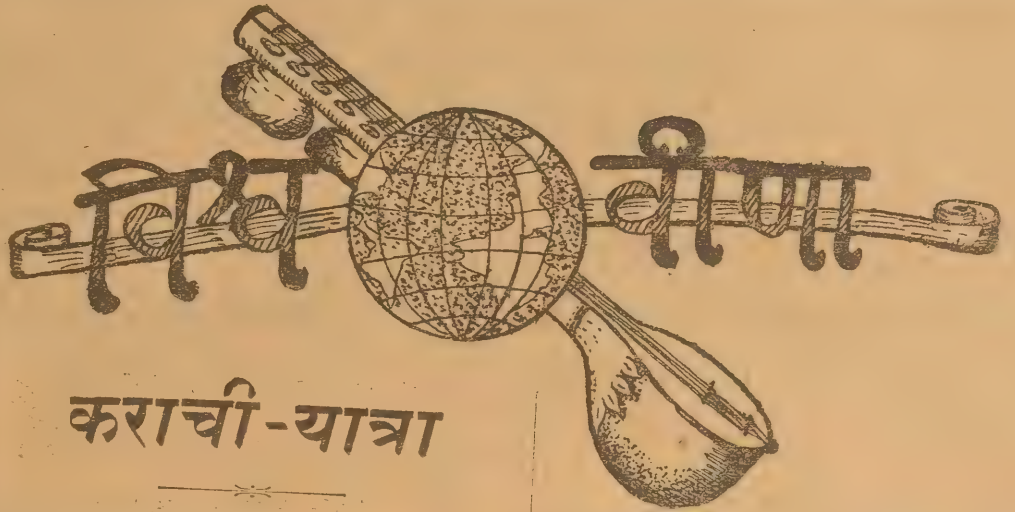 विश्व वीणा
कराची-यात्रा